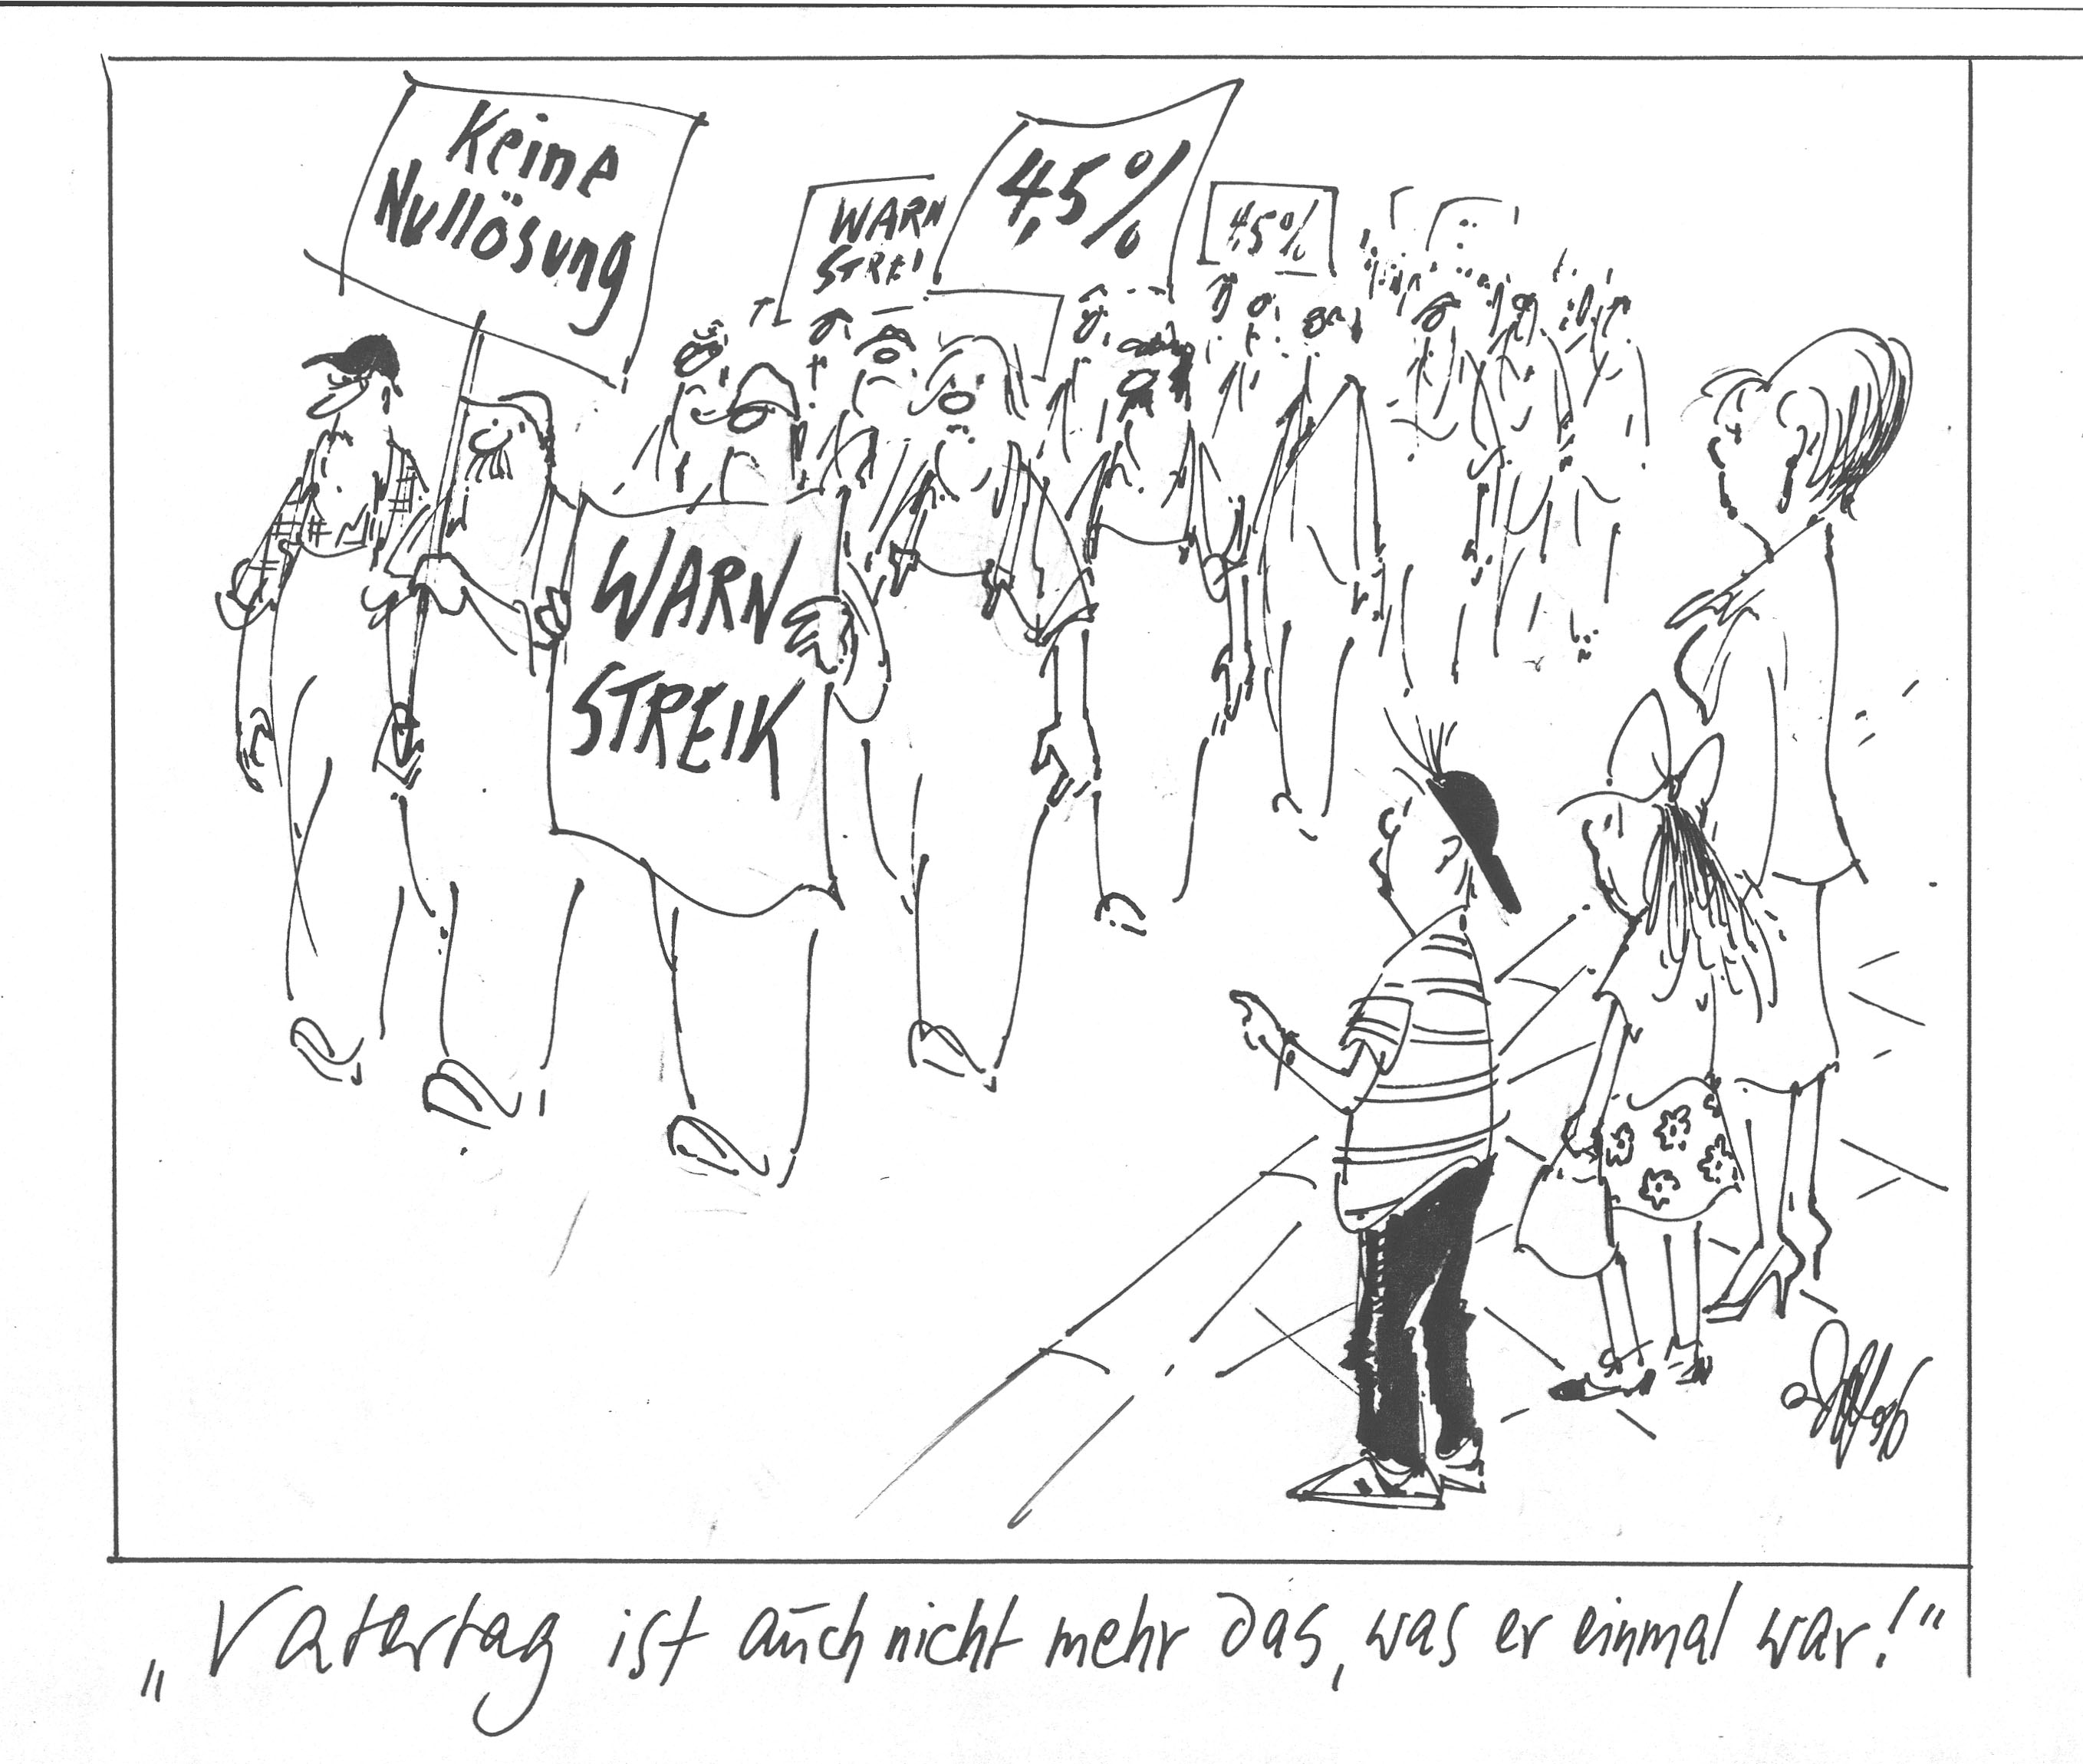 Keine
Nullösung
WARN
STREI
4,5%
4,5%
WARN
STREIK
„Vatertag ist auch nicht mehr das, was er einmal war!“